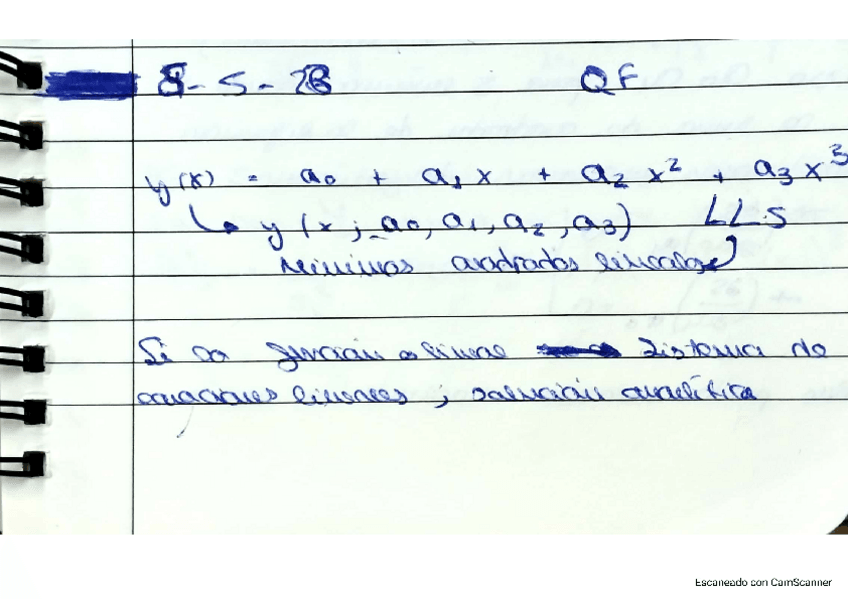 8-5-23 QF
y(x) = a₀ + a₁x + a₂x² + a₃x³
↳ y(x; a₀, a₁, a₂, a₃) LLS
Mínimos cuadrados lineales
Si la función es lineal sistema de
ecuaciones lineales; solución analítica
Escaneado con CamScanner